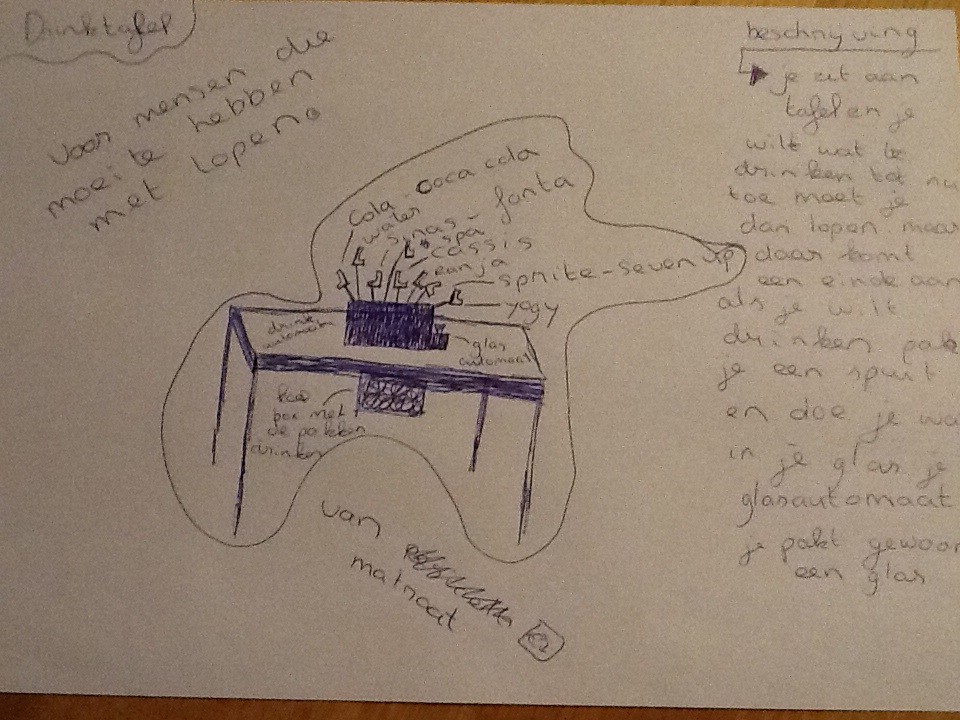 Drinktafel
Voor mensen die
moeite hebben
met lopen.
cola coca cola
water
sinas - fanta
spa
cassis
ranja
sprite-seven up
yogy
drink
automaat
glas
automaat
box met
de pakken
drinken
van
matraat
beschrijving
je zit aan
tafel en je
wilt wat te
drinken tot nu
toe moet je
dan lopen maar
daar komt
een einde aan
als je wilt
drinken pak
je een spuit
en doe je wa
in je glas je
glasautomaat
je pakt gewoon
een glas